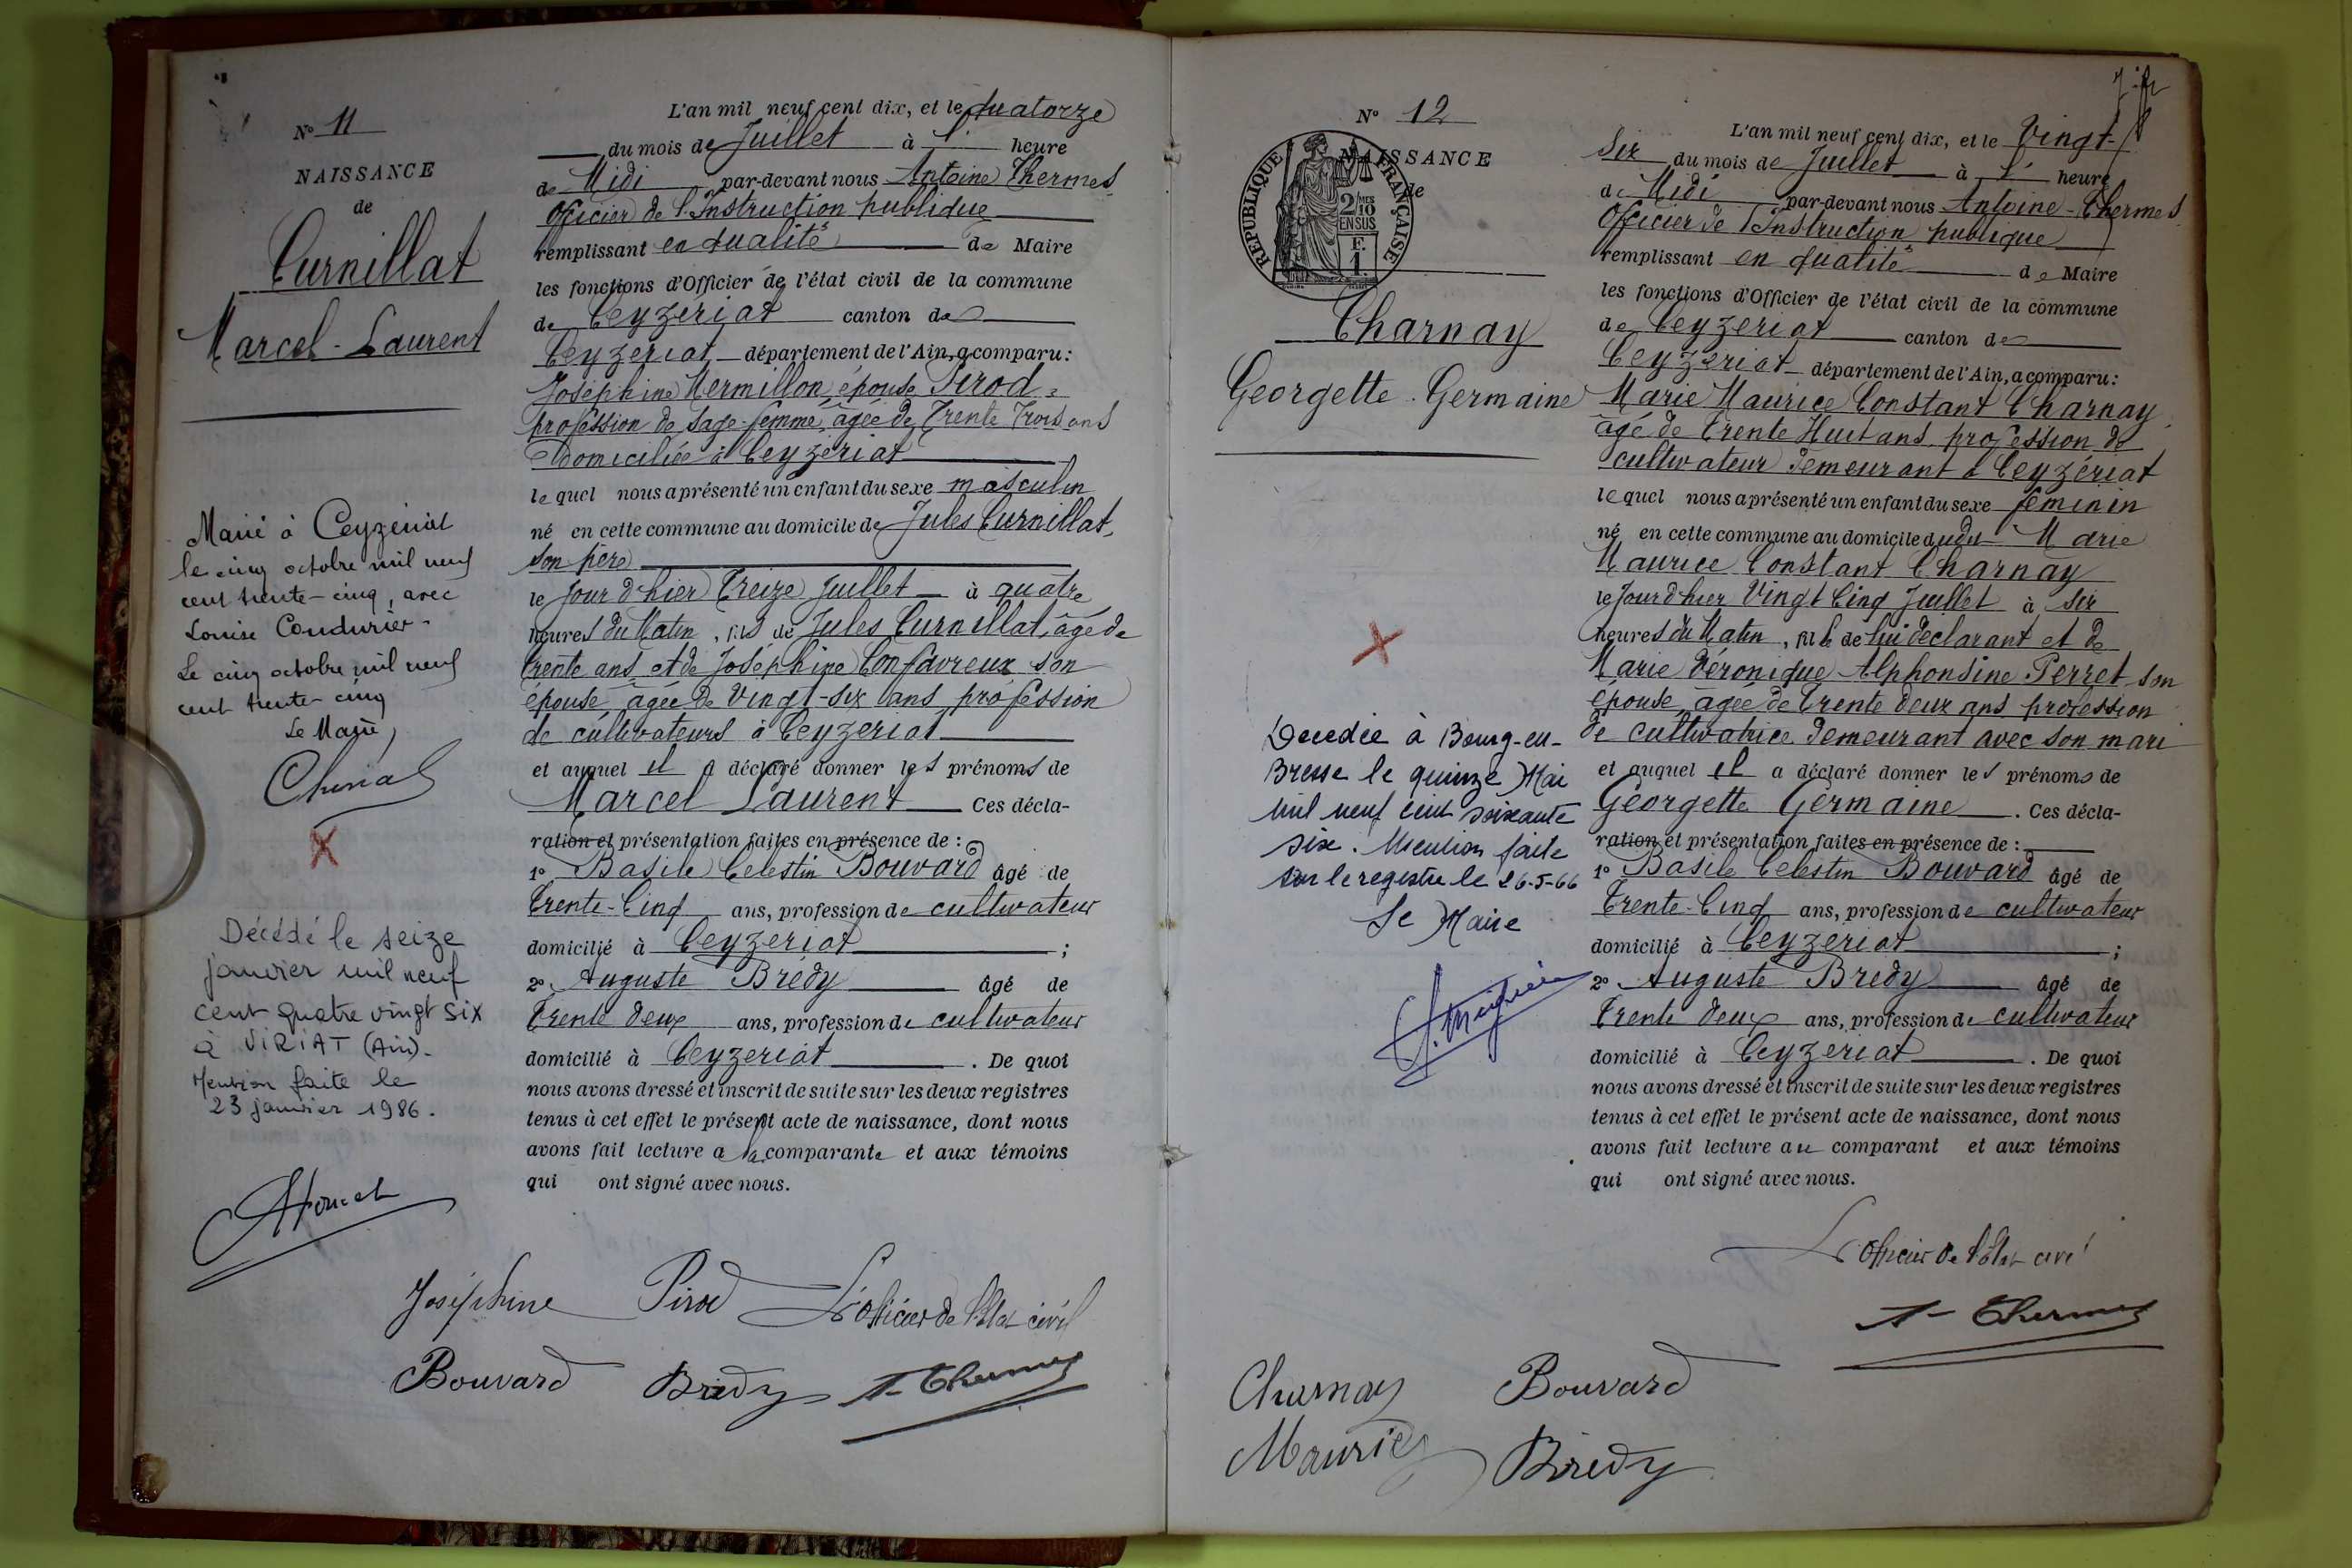 N° 11
NAISSANCE
de
Curnillat
Marcel-Laurent
Marié à Ceyzériat
le cinq octobre mil neuf
cent trente-cinq, avec
Louise Coudurier.
Le cinq octobre mil neuf
cent trente-cinq
Le Maire,
Décédé le seize
janvier mil neuf
cent quatre vingt six
à VIRIAT (Ain).
Mention faite le
23 janvier 1986.
L'an mil neuf cent dix, et le quatorze
du mois de Juillet à 1 heure
de Midi par-devant nous Antoine Thermes
Officier de l'Instruction publique
remplissant en qualité de Maire
les fonctions d'Officier de l'état civil de la commune
de Ceyzériat canton de
Ceyzeriat département de l'Ain, a comparu :
Joséphine Mermillon, épouse Pirod,
profession de sage-femme, âgée de Trente Trois ans
domiciliée à Ceyzériat
lequel nous a présenté un enfant du sexe masculin
né en cette commune au domicile de Jules Curnillat,
son père
le jour d'hier Treize Juillet à quatre
heures du Matin, fils de Jules Curnillat, âgé de
trente ans et de Joséphine Confavreux son
épouse âgée de vingt-six ans profession
de cultivateurs à Ceyzeriat
et auquel il a déclaré donner les prénoms de
Marcel Laurent Ces décla-
ration et présentation faites en présence de :
1° Basile Celestin Bouvard âgé de
Trente-Cinq ans, profession de cultivateur
domicilié à Ceyzeriat ;
2° Auguste Brédy âgé de
Trente deux ans, profession de cultivateur
domicilié à Ceyzeriat . De quoi
nous avons dressé et inscrit de suite sur les deux registres
tenus à cet effet le présent acte de naissance, dont nous
avons fait lecture a la comparante et aux témoins
qui ont signé avec nous.
Joséphine Pirod L'officier de l'Etat civil
Bouvard Brédy A. Thermes
N° 12
NAISSANCE
de
REPUBLIQUE FRANÇAISE
2/10MES
EN SUS
F.
1.
Charnay
Georgette Germaine
Decedée à Bourg-en-
Bresse le quinze Mai
mil neuf cent soixante
six. Mention faite
sur le registre le 26-5-66
Le Maire
L'an mil neuf cent dix, et le Vingt-
Six du mois de Juillet à 1 heure
de Midi par-devant nous Antoine Thermes
Officier de l'Instruction publique
remplissant en qualité de Maire
les fonctions d'Officier de l'état civil de la commune
de Ceyzeriat canton de
Ceyzeriat département de l'Ain, a comparu :
Marie Maurice Constant Charnay,
âgé de Trente Huit ans profession de
cultivateur demeurant à Ceyzériat
lequel nous a présenté un enfant du sexe féminin
né en cette commune au domicile dudu Marie
Maurice Constant Charnay
le jour d'hier Vingt Cinq Juillet à six
heures du Matin, fille de lui déclarant et de
Marie Véronique Alphonsine Perret son
épouse, âgée de Trente deux ans profession
de cultivatrice demeurant avec son mari
et auquel il a déclaré donner les prénoms de
Georgette Germaine . Ces décla-
ration et présentation faites en présence de :
1° Basile Celestin Bouvard âgé de
Trente-Cinq ans, profession de cultivateur
domicilié à Ceyzeriat ;
2° Auguste Bredy âgé de
Trente deux ans, profession de cultivateur
domicilié à Ceyzeriat . De quoi
nous avons dressé et inscrit de suite sur les deux registres
tenus à cet effet le présent acte de naissance, dont nous
avons fait lecture au comparant et aux témoins
qui ont signé avec nous.
L'officier de l'Etat civil
A. Thermes
Charnay Bouvard
Maurice Bredy